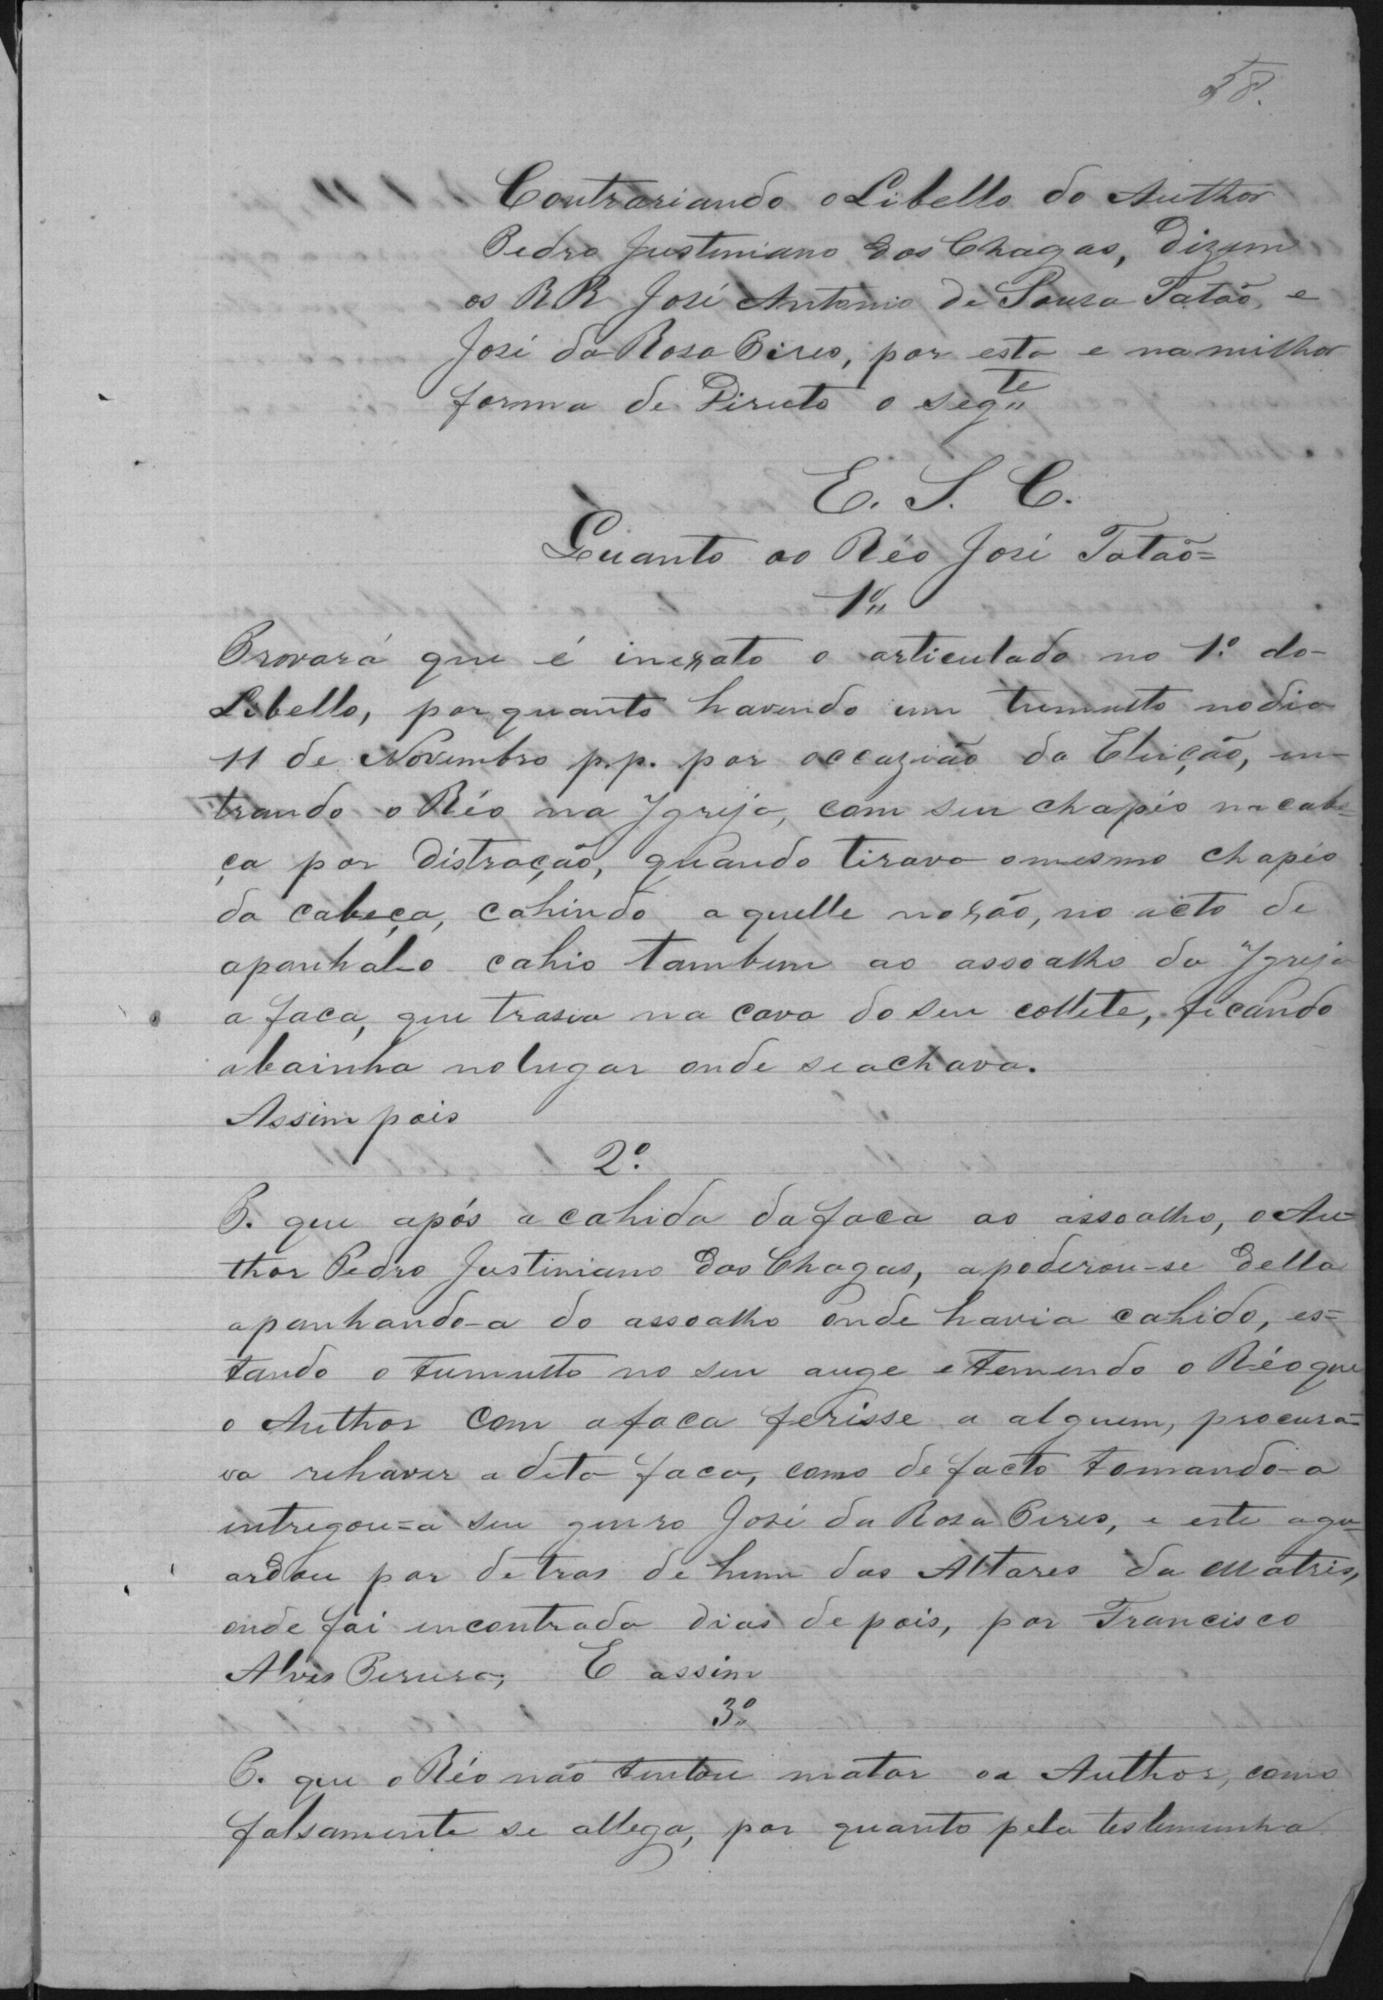 58.
Contrariando o Libello do Author
Pedro Justiniano dos Chagas, Dizem
os RR José Antonio de Souza Tatão, e
José da Rosa Pires, por esta e na milhor
forma de Direito o segte
E. S. C.
Quanto ao Réo José Tatão=
1º
Provará que é inexato o articulado no 1º do
Libello, porquanto havendo um tumulto no dia
11 de Novembro p.p. por occazião da Eleição, en-
trando o Réo na Igreja, com seu chapéo na cabe=
ça por distração, quando tirava o mesmo chapéo
da cabeça, cahindo aquelle no xão, no acto de
apanhal-o cahio tambem ao assoalho da Igreja
a faca, que trasia na cava do seu collete, ficando
a bainha no lugar onde se achava.
Assim pois
2º
P. que após a cahida da faca ao assoalho, o Au=
thor Pedro Justiniano das Chagas, apoderou-se della
apanhando-a do assoalho onde havia cahido, es=
tando o tumulto no seu auge e temendo o Réo que
o Author com a faca ferisse a alguem, procura=
va rehaver a dita faca, como de facto tomando-a
entregou=a seu genro José da Rosa Pires, e este a gu=
ardou por detras de hum dos Altares da Matris,
onde foi encontrada dias depois, por Francisco
Alves Pereira; E assim
3º
P. que o Réo não tentou matar oa Author, como
falsamente se allega, por quanto pela testemunha